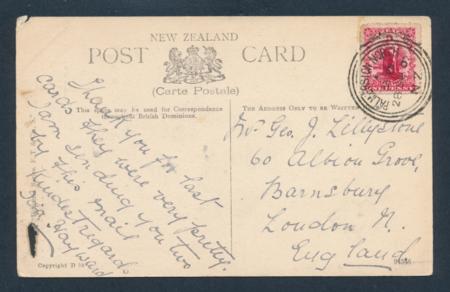 NEW ZEALAND
POST CARD
(Carte Postale)
This space may be used for Correspondence
throughout British Dominions.
THE ADDRESS ONLY TO BE WRITTEN
Thank you for last
cards they were very pretty.
I am sending you two
by this mail
Kindest regards
Hayward
Mr Geo. J. Lillystone
60 Albion Grove,
Barnsbury
London N.
England
ONE PENNY
PALMERSTON NORTH
Copyright D